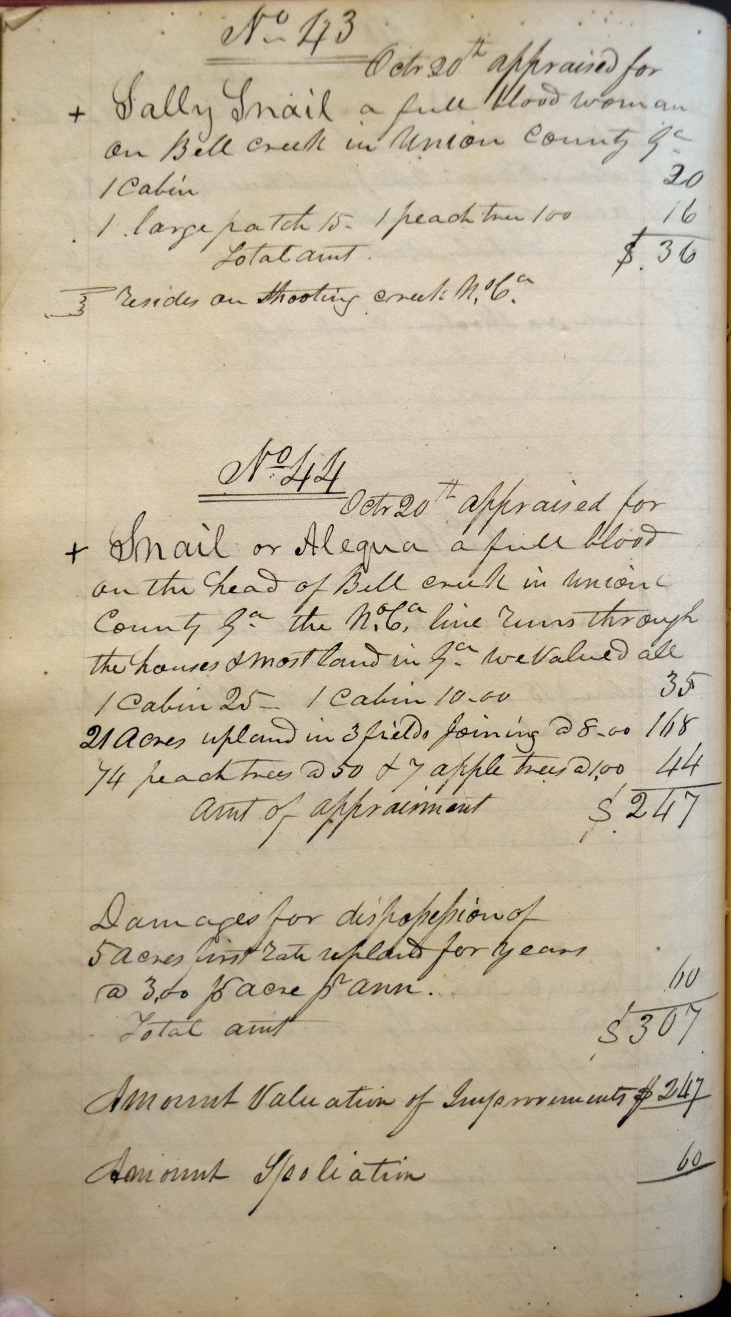 No 43
Octr 20th appraised for
+ Sally Snail a full blood woman
on Bell creek in Union County Ga
1 Cabin 20
1 large patch 15- 1 peach tree 100 16
Total amt. $.36
resides on Shooting creek No. Ca.
No 44
Octr 20th appraised for
+ Snail or Alequa a full blood
on the head of Bell creek in Union
County Ga the No. Ca. line runs through
the houses & most land in Ga we Valued all
1 Cabin 25- 1 Cabin 10-00 35
21 Acres upland in 3 fields Joining @ 8-00 168
74 peach trees @ 50 & 7 apple trees @ 1,00 44
Amt of appraisment $247
Damages for dispossession of
5 Acres first rate upland for years
@ 3,00 pr acre pr ann... 60
Total amt $307
Amount Valuation of Improvements $247
Amount Spoliation 60